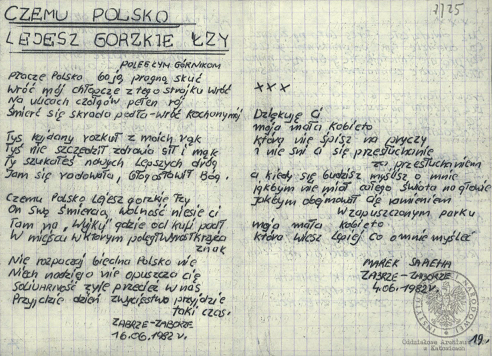 CZEMU POLSKO
LEJESZ GORZKIE ŁZY
POLEGŁYM GÓRNIKOM
Płacze Polsko boją pragną skuć
Wróć mój chłopcze z tego strajku wróć
Na ulicach czołgów pełen rój
Śmierć się skrada podła-wróć kochany mój
Tyś kajdany rozkuł z moich rąk
Tyś nie szczędził zdrowia sił i mąk
Ty szukałeś nowych lepszych dróg
Jam się radowała, błogosławił Bóg.
Czemu Polsko lejesz gorzkie łzy
On swą śmiercią wolność niesie ci
Tam na „Wujku" gdzie od kul padł
W miejscu w którym poległ wyrósł krzyża
znak
Nie rozpaczaj biedna Polsko nie
Niech nadzieja nie opuszcza cię
Solidarność żyje przecież w nas
Przyjdzie dzień zwycięstwa przyjdzie
taki czas.
ZABRZE-ZABORZE
16.06.1982 r.
7/25
xxx
Dziękuję Ci
moja mała kobieto
która nie śpisz na pryczy
i nie śni ci się przesłuchanie
za przesłuchaniem
a kiedy się budzisz myślisz o mnie
jakbym nie miał całego świata na głowie
jakbym obejmował cię ramieniem
w zapuszczonym parku
moja mała kobieto
która wiesz lepiej co o mnie myśleć
MAREK SAPEHA
ZABRZE-ZABORZE
4.06.1982 r.
INSTYTUT PAMIĘCI NARODOWEJ
Oddziałowe Archiwum
w Katowicach
19